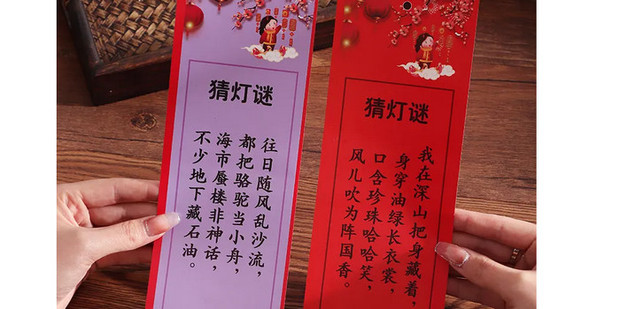 猜灯谜
往日随风乱沙流，
都把骆驼当小舟，
海市蜃楼非神话，
不少地下藏石油。
猜灯谜
我在深山把身藏着，
身穿油绿长衣裳，
口含珍珠哈哈笑，
风儿吹为阵国香。